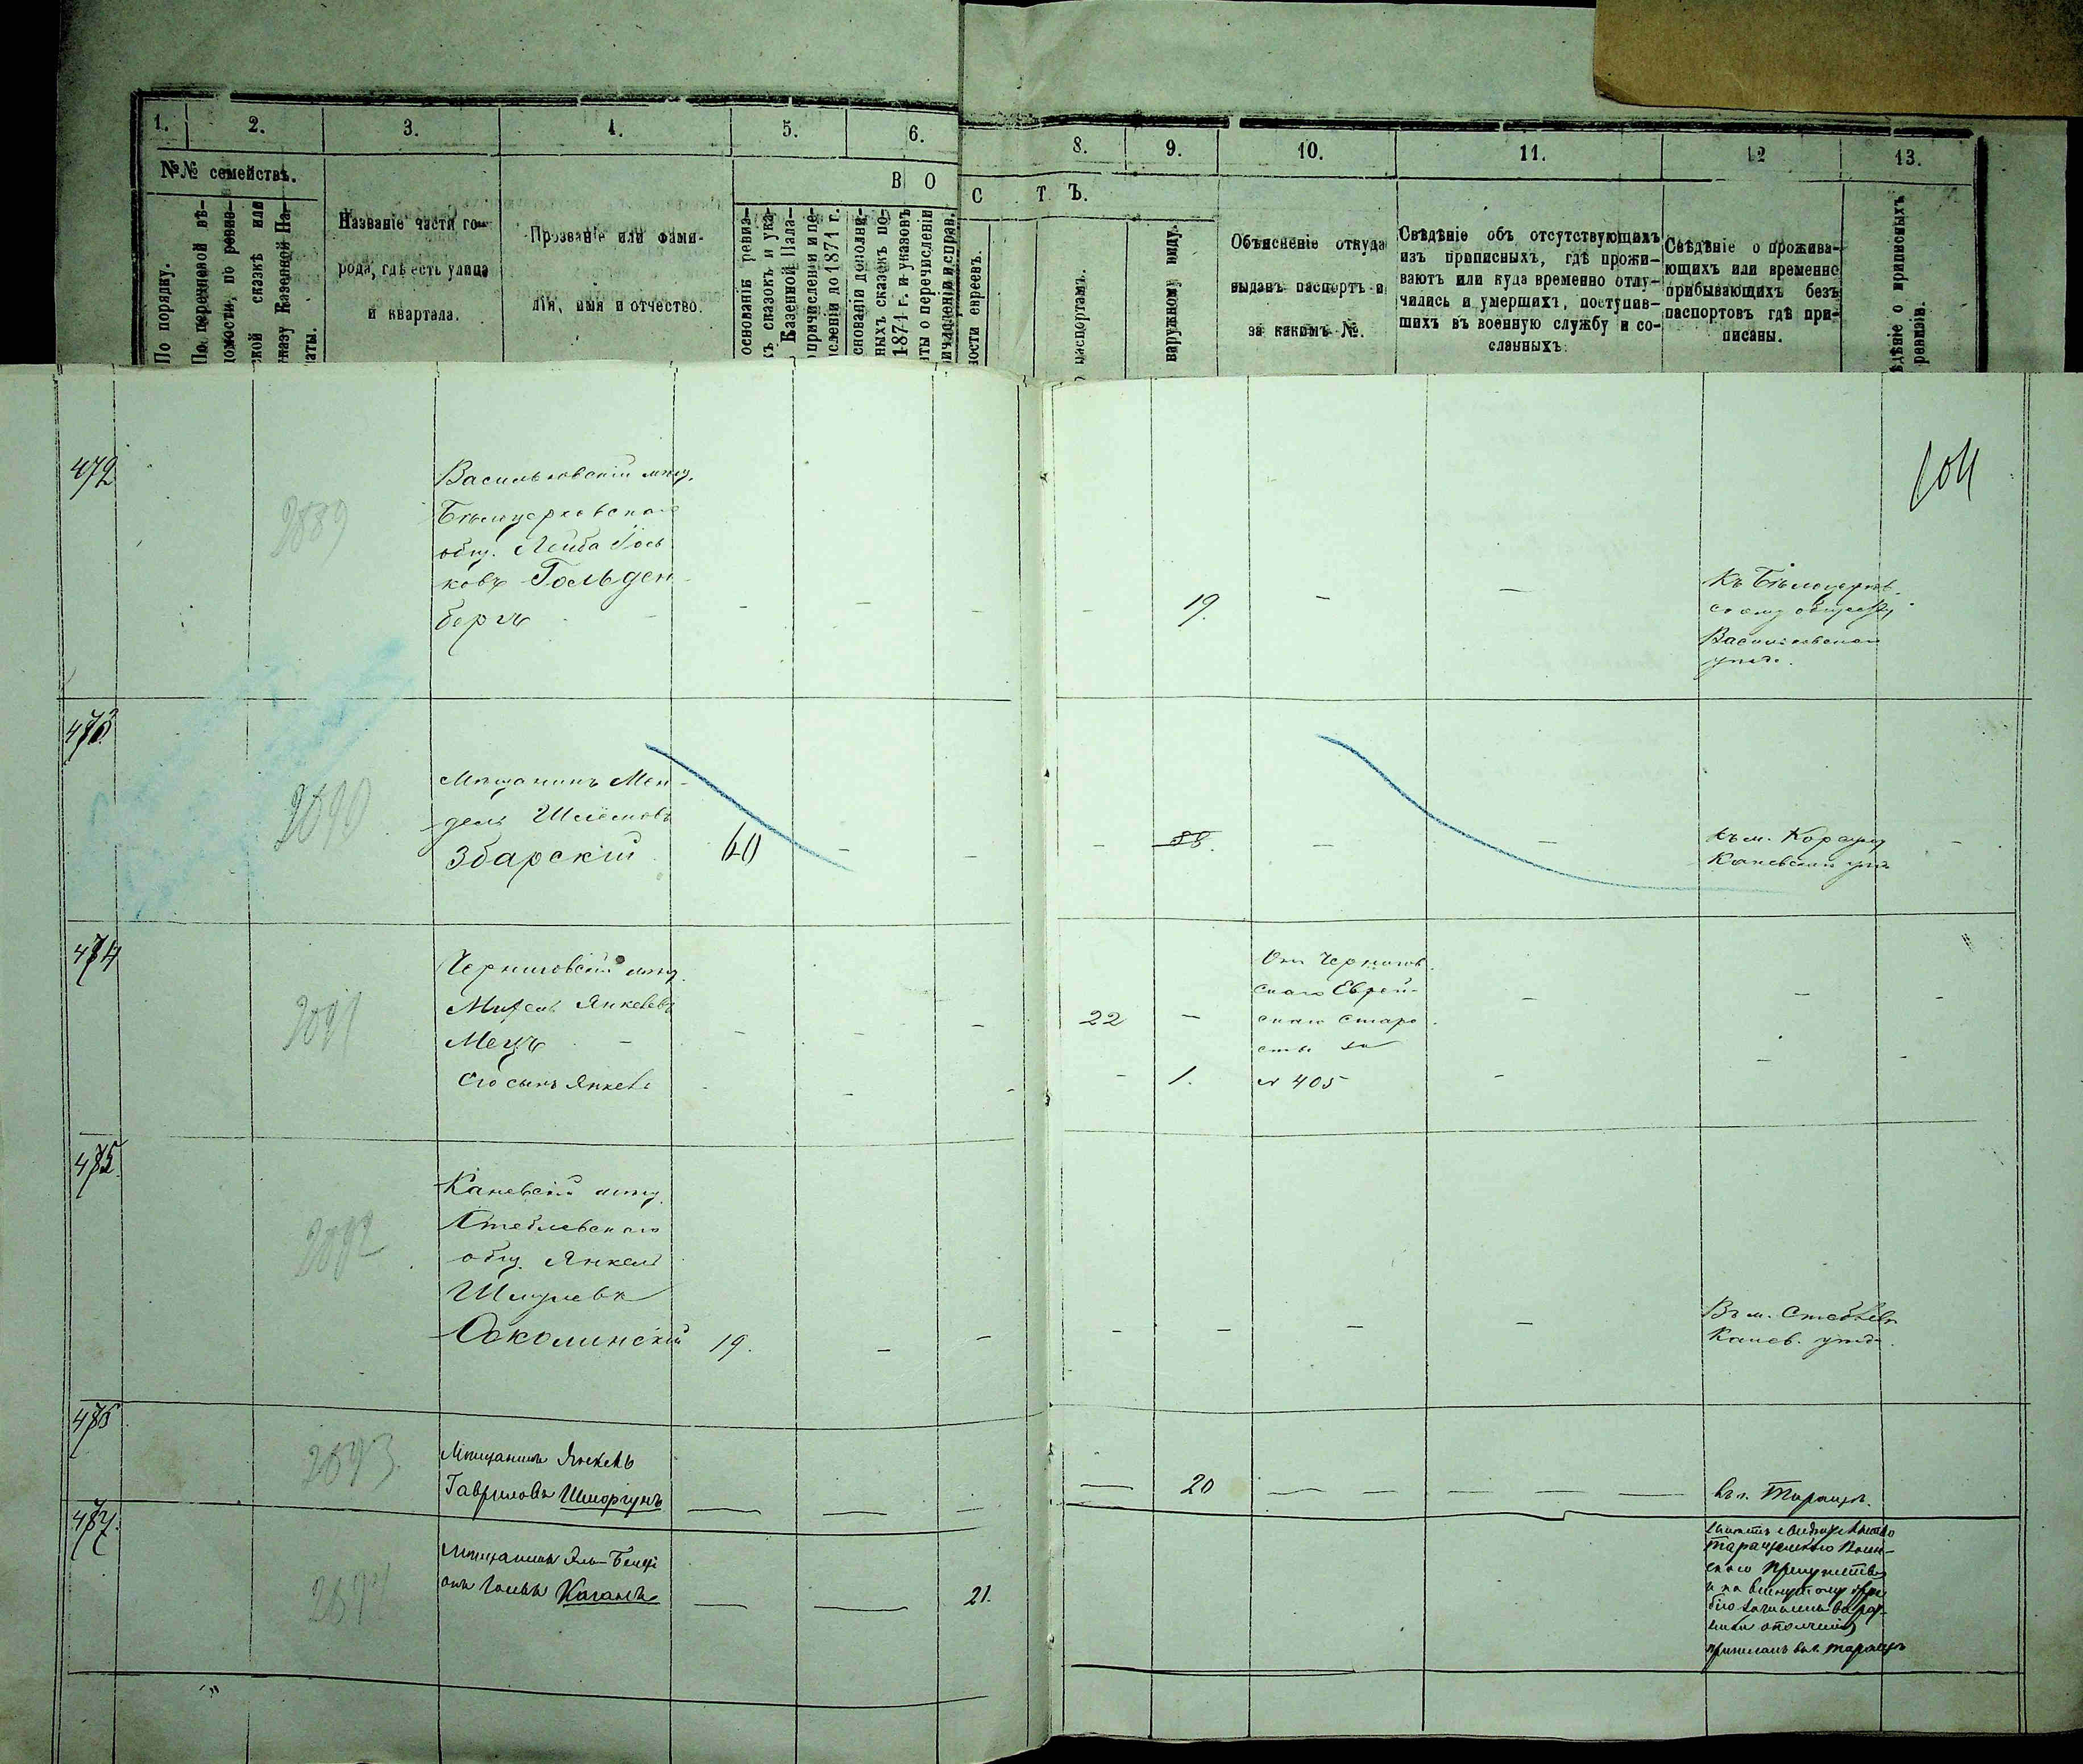 1. 2. 3. 4. 5. 6. 8. 9. 10. 11. 12 13.
№№ семействъ.
В О С Т Ъ.
По порядку.
По перечневой вѣ-
домости, по ревиз-
ской сказкѣ или
указу Казенной Па-
латы.
Названіе части го-
рода, гдѣ есть улица
и квартала.
Прозваніе или фами-
лія, имя и отчество.
основаніе ревиз-
къ сказокъ и ука-
Казенной Пала-
причисленіи и пе-
исленіи до 1871 г.
снованіи дополни-
ныхъ сказокъ по-
1871 г. и указовъ
ты о перечисленіи
ичисленіи и справ.
ности евреевъ.
паспортамъ.
наружному виду.
Объясненіе откуда
выданъ паспортъ и
за какимъ №.
Свѣдѣніе объ отсутствующихъ
изъ приписныхъ, гдѣ прожи-
ваютъ или куда временно отлу-
чились и умершихъ, поступив-
шихъ въ военную службу и со-
сланныхъ.
Свѣдѣніе о прожива-
ющихъ или временно
прибывающихъ безъ
паспортовъ гдѣ при-
писаны.
ѣдѣніе о приписныхъ
ревизіи.
104
472
2889
Васильковскій мѣщ.
Бѣлоцерковскаго
общ. Лейба Іось
ковъ Гольден
бергъ
19.
Къ Бѣлоцерков.
скому обществу
Васильковскаго
уѣзда.
473
2890
Мѣщанинъ Мен-
дель Шлемовъ
Збарскій
60
58.
Къ м.
Каневскаго уѣз.
474
2891
Черниговскій мѣщ.
Янкелевъ
Мецъ
Его сынъ Янкель
22
1.
Отъ Чернигов.
скаго Еврей-
скаго старо
сты за
№ 405
475
2892
Каневскій мѣщ.
Стеблевскаго
общ. Янкель
Шмулевъ
Соколинскій
19.
Въ м. Стеблевѣ
Канев. уѣзда.
476
2893
Мѣщанинъ Янкель
Гавриловъ Шморгунъ
20
въ г. Таращѣ.
477.
2894
Мѣщанинъ
Каганъ
21.
Таращанскаго Воин-
скаго Присутствія
ополченія
приписанъ въ г. Таращѣ